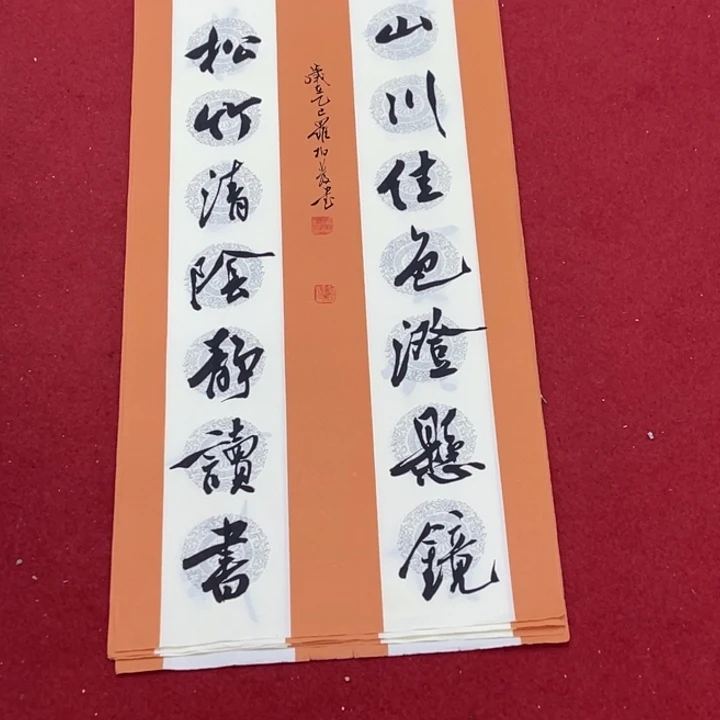 山川佳色澄懸鏡
松竹清陰靜讀書
歲在乙巳羅柏芳書